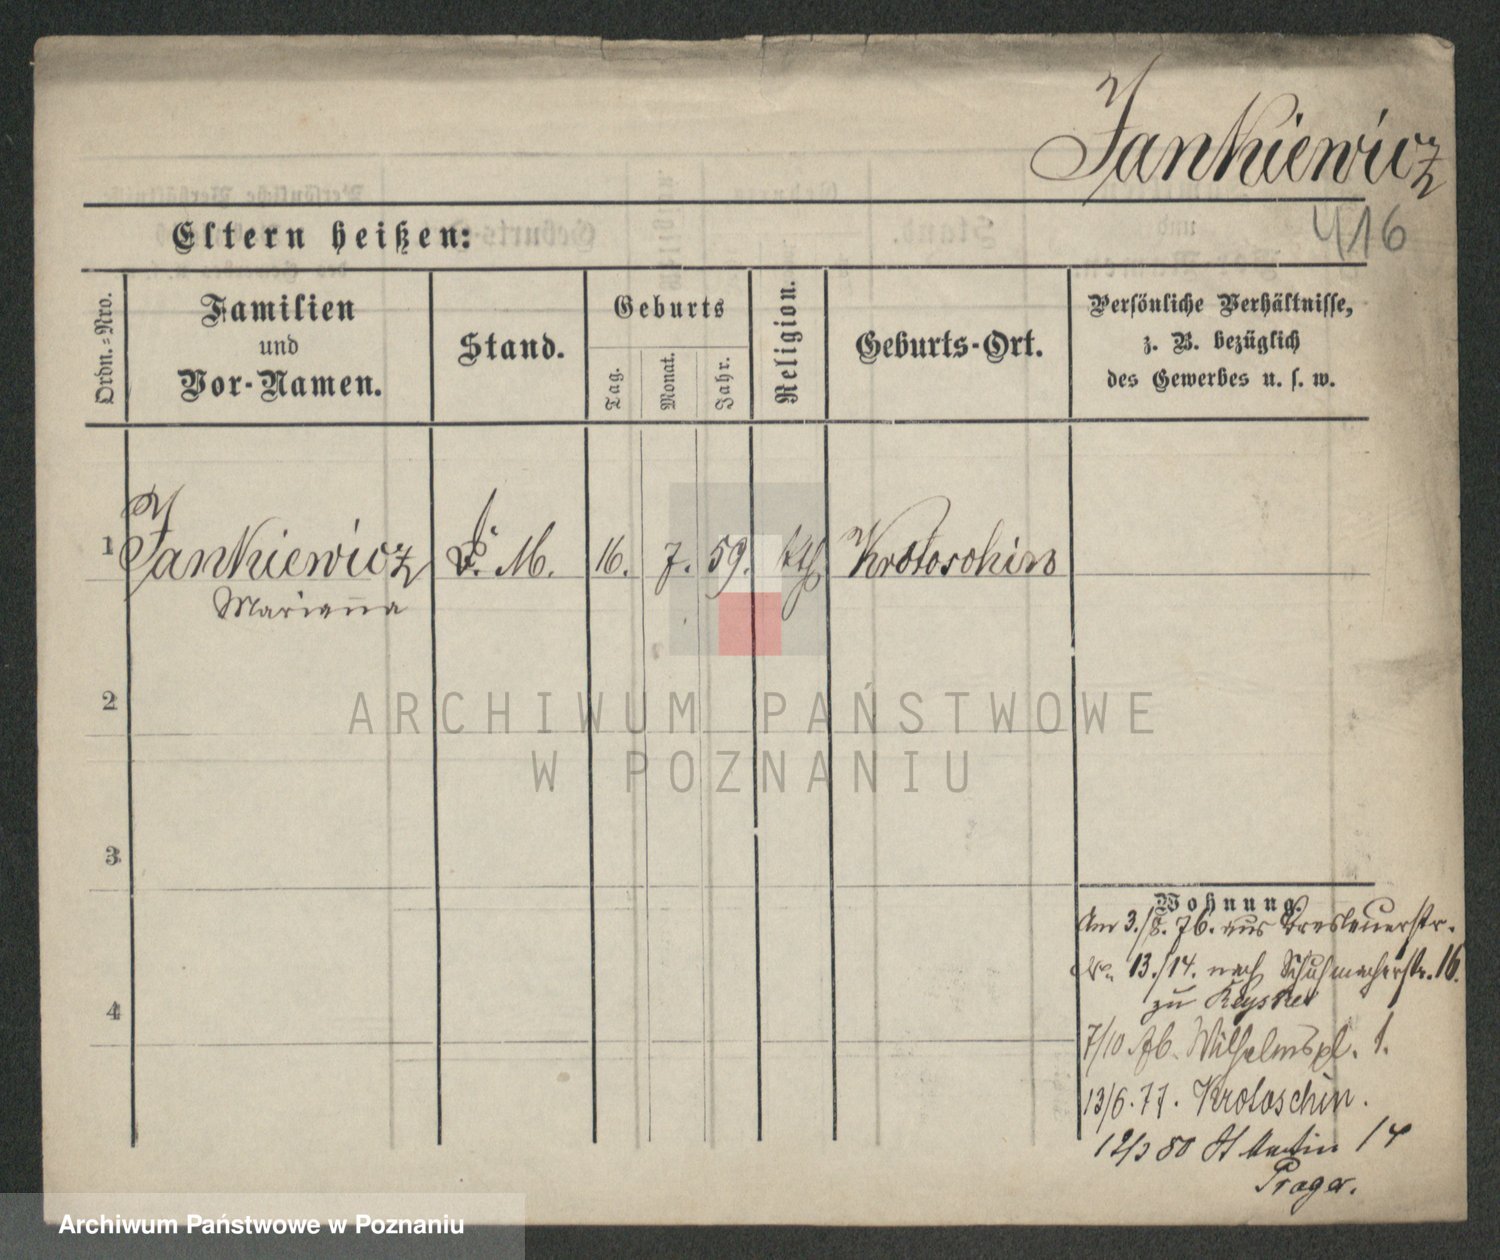 Jankiewicz
416
Eltern heißen:
Ordn.=Nro.
Familien
und
Vor-Namen.
Stand.
Geburts
Tag.
Monat.
Jahr.
Religion.
Geburts-Ort.
Persönliche Verhältnisse,
z. B. bezüglich
des Gewerbes u. s. w.
1 Jankiewicz M. 16. 7. 59. kth Krotoschin
Marianna
2
3
4
Wohnung.
Am 3./8. 76. aus Breslauerstr.
No. 13./14. nach Schuhmacherstr. 16.
zu
7/10 76. Wilhelmspl. 1.
13/6. 77. Krotoschin.
12/3 80 St Martin 14
Prager.
ARCHIWUM PAŃSTWOWE
W POZNANIU
Archiwum Państwowe w Poznaniu